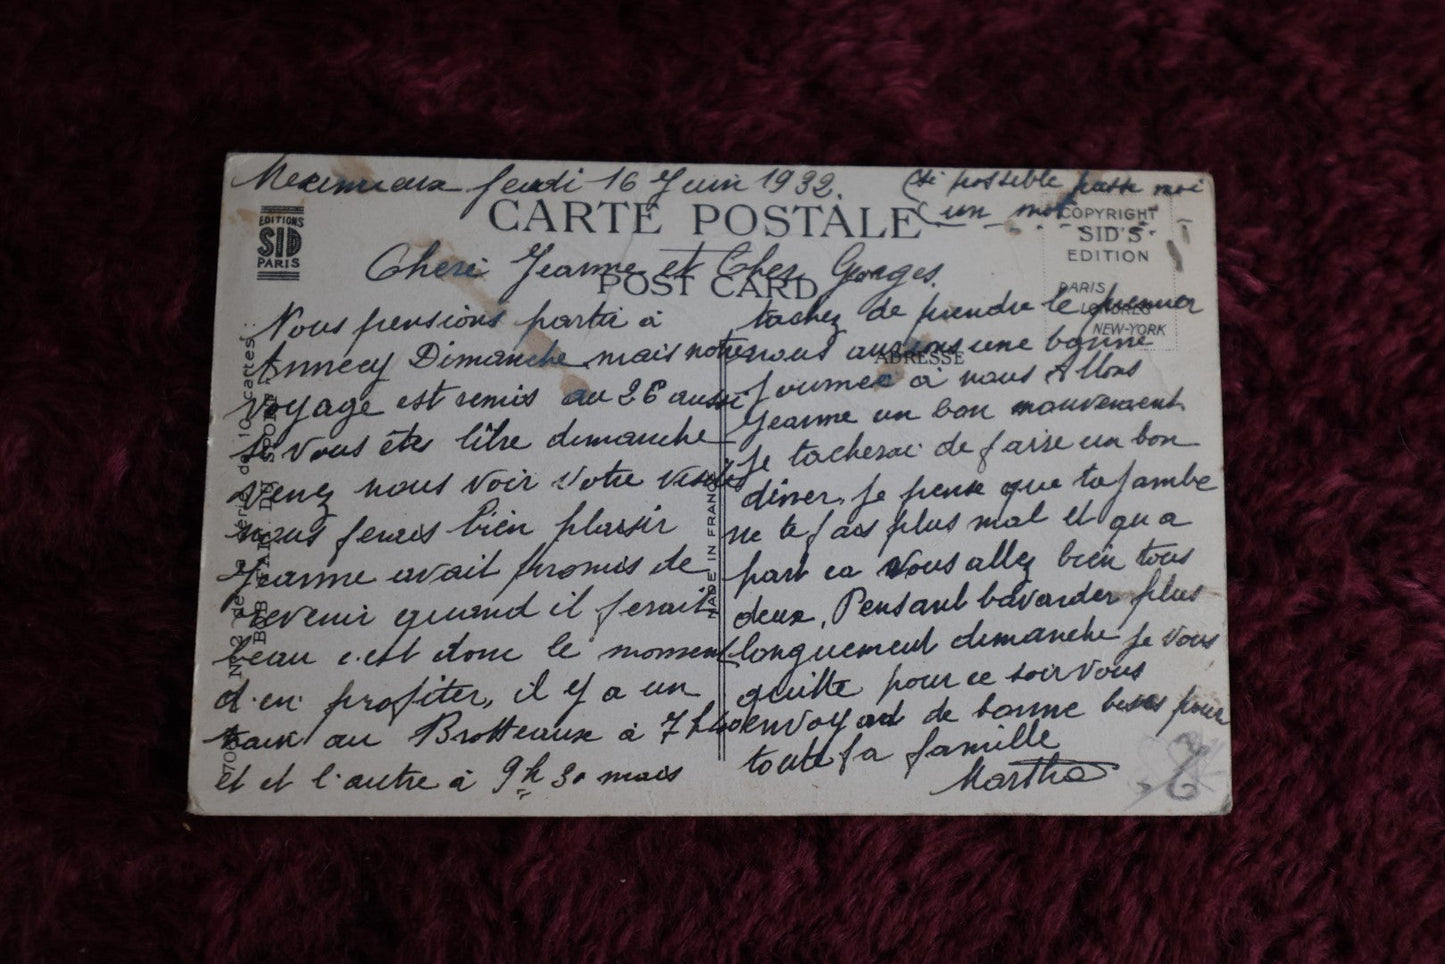 Meximieux Jeudi 16 Juin 1932.
(si possible passe moi
un mot
CARTE POSTALE
EDITIONS
SID
PARIS
COPYRIGHT
SID'S
EDITION
PARIS
LONDRES
NEW-YORK
Cheri Jeanne et Cher Georges.
POST CARD
ADRESSE
Nous pensions partir à
Annecy Dimanche mais notre
voyage est remis au 26 aussi
si vous êtes libre dimanche
venez nous voir votre visite
nous ferais bien plaisir
Jeanne avait promis de
revenir quand il ferait
beau c'est donc le moment
d'en profiter, il y a un
train au Brotteaux à 7h40
et et l'autre à 9h 30 mais
tachez de prendre le premier
nous aurions une bonne
Journée à nous Allons
Jeanne un bon mouvement
je tacherai de faire un bon
diner, je pense que ta jambe
ne te fais plus mal et qu a
part ca vous allez bien tous
deux, Pensant bavarder plus
longuement dimanche je vous
quitte pour ce soir vous
envoyant de bonne bises pour
toute la famille
Martha
MADE IN FRANCE
No 2 de la série de 10 cartes:
DU SPORT